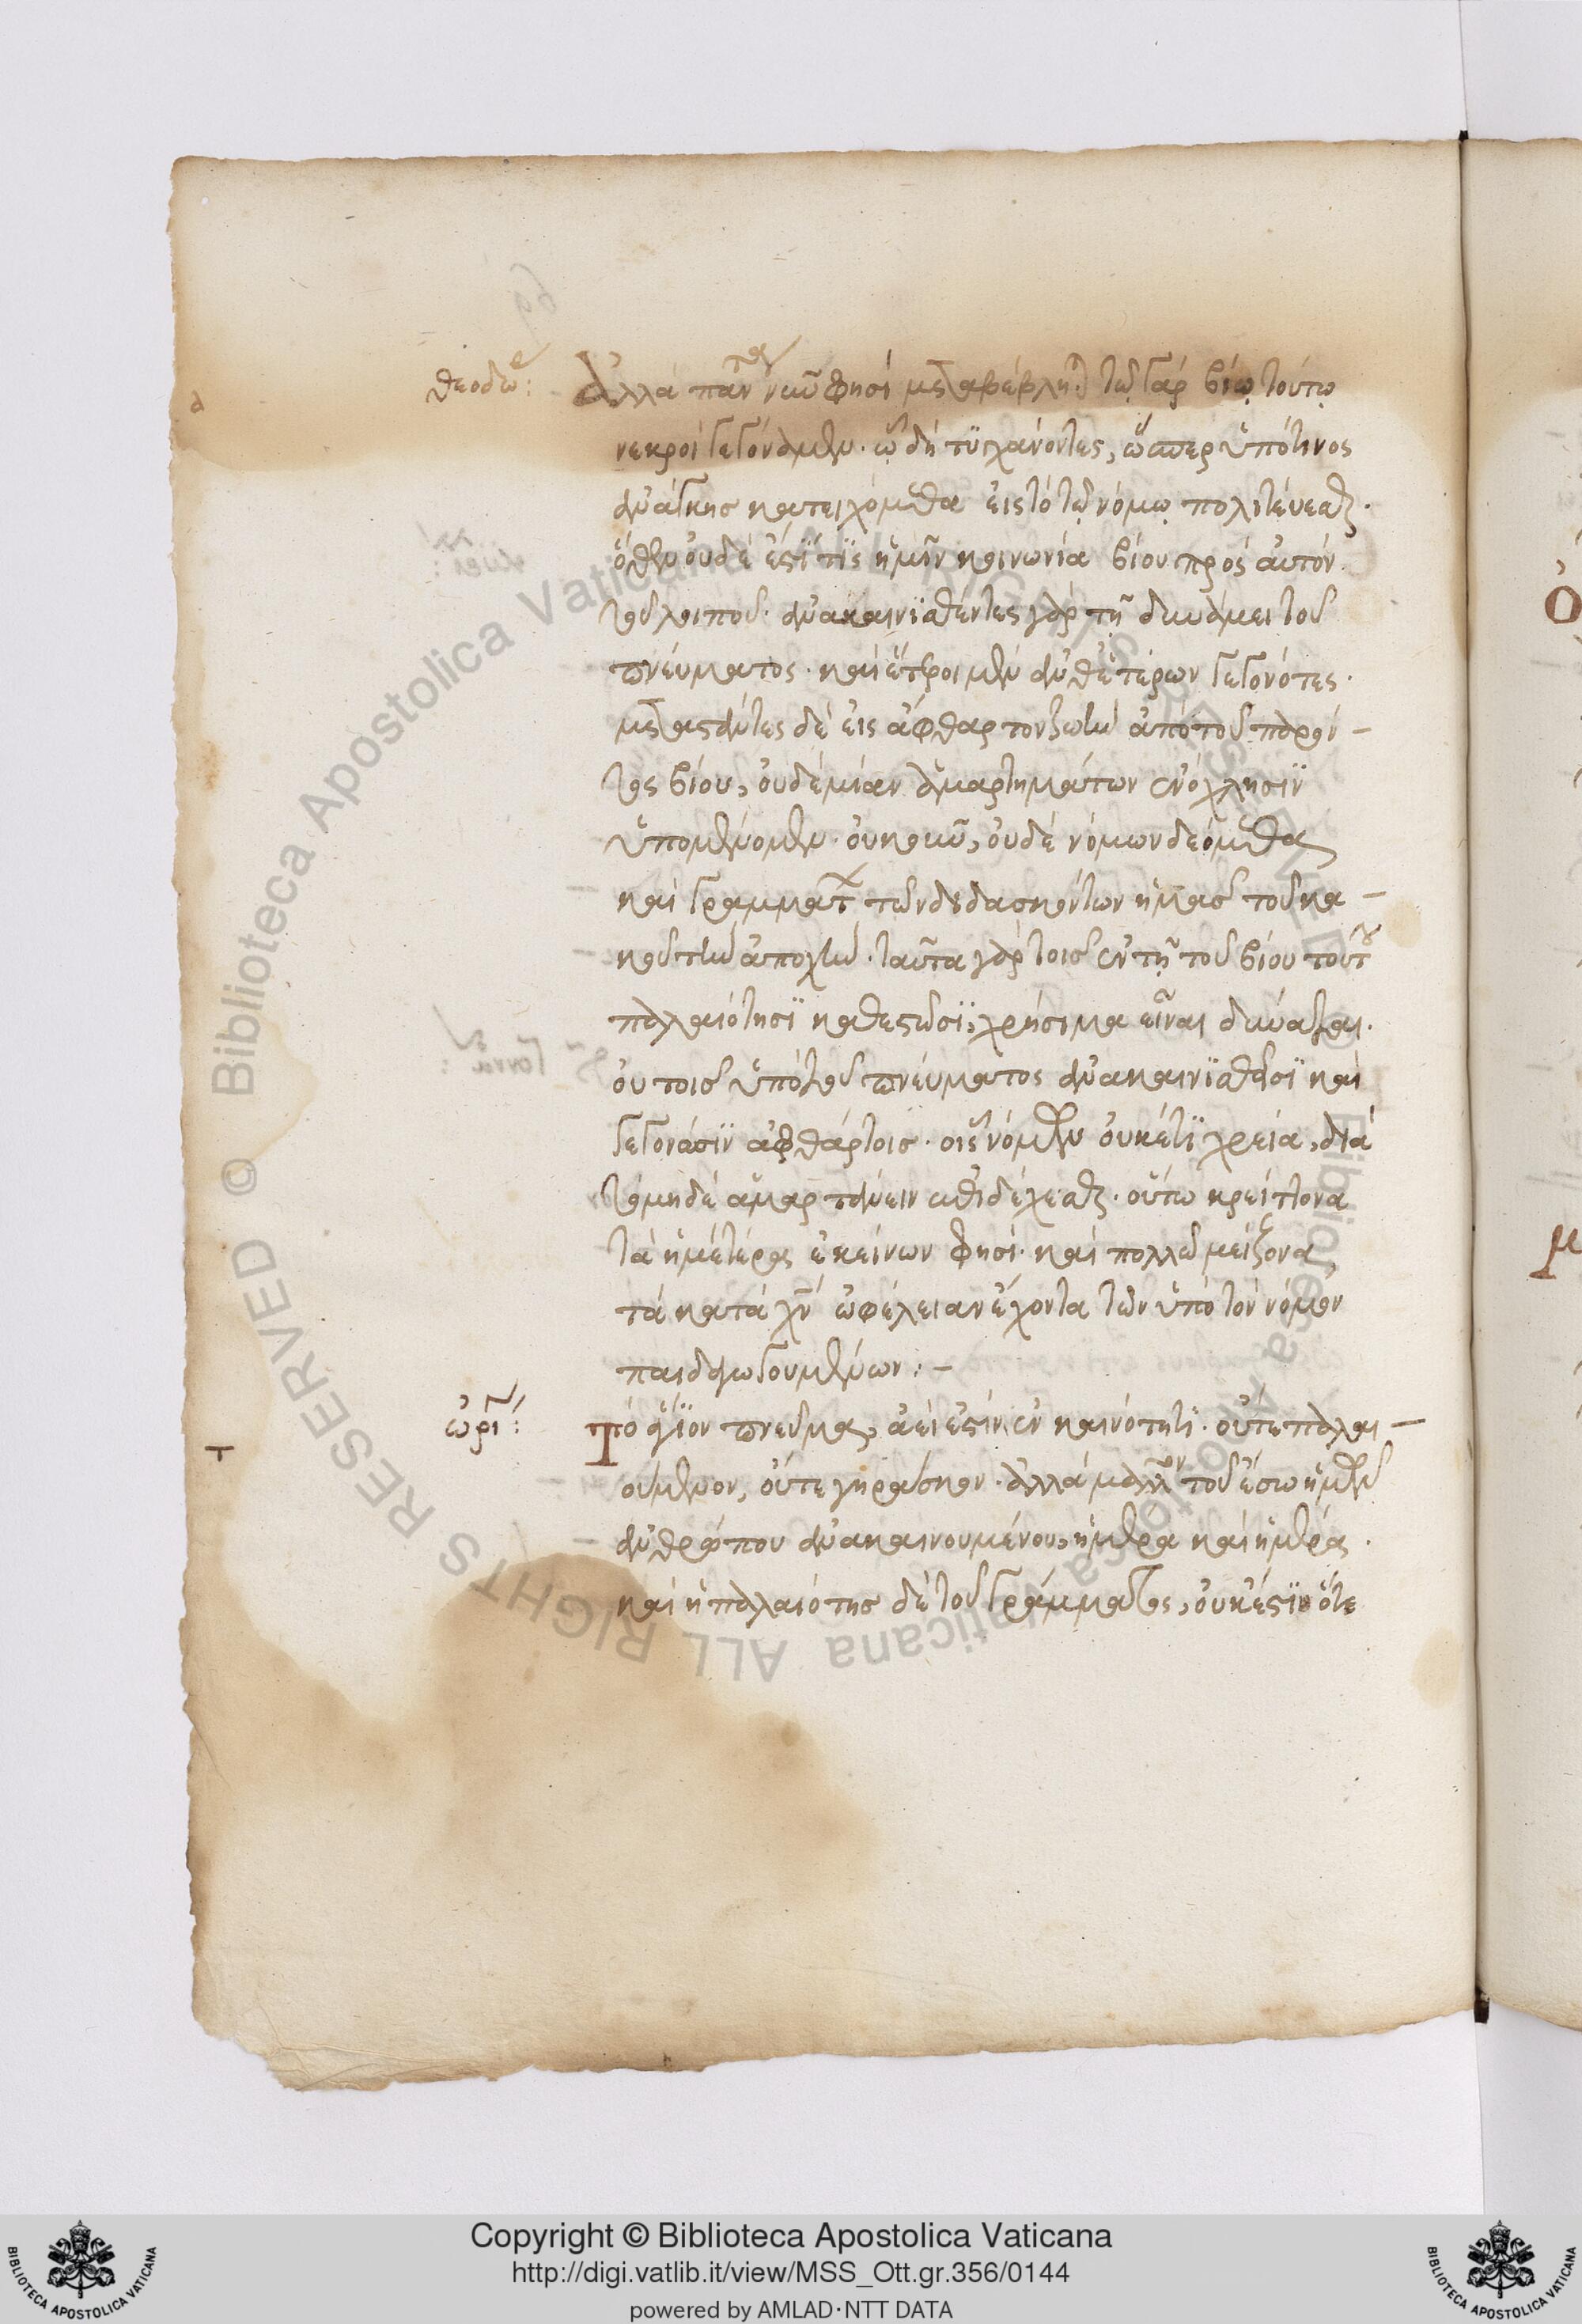 θεοδω:
Ἀλλὰ πάντα νῦν φησὶ μεταβέβληται. τῷ γὰρ βίῳ τούτῳ
νεκροὶ γεγόναμεν. ᾧ δὴ τυγχάνοντες, ὥσπερ ὑπό τινος
ἀνάγκης κατειχόμεθα εἰς τὸ τῷ νόμῳ πολιτεύεσθαι.
ὅθεν οὐδέ ἐστί τις ἡμῖν κοινωνία βίου πρὸς αὐτὸν
τοῦ λοιποῦ. ἀνακαινισθέντες γὰρ τῇ δυνάμει τοῦ
πνεύματος. καὶ ἕτεροι μὲν ἀνθ' ἑτέρων γεγονότες.
μεταστάντες δὲ εἰς ἄφθαρτον ζωὴν ἀπὸ τοῦ παρόν-
τος βίου, οὐδεμίαν ἁμαρτημάτων ἐνόχλησιν
ὑπομένομεν. οὐκοῦν, οὐδὲ νόμων δεόμεθα
καὶ γραμμάτων τῶν διδασκόντων ἡμᾶς τοῦ κα-
κοῦ τὴν ἀποχήν. ταῦτα γὰρ τοῖς ἐν τῇ τοῦ βίου τούτου
παλαιότητι καθεστῶσι, χρήσιμα εἶναι δύναται.
οὐ τοῖς ὑπὸ τοῦ πνεύματος ἀνακαινισθεῖσι καὶ
γεγονόσιν ἀφθάρτοις. οἷς νόμων οὐκέτι χρεία, διὰ
τὸ μηδὲ ἁμαρτάνειν ἐπιδέχεσθαι. οὕτω κρείττονα
τὰ ἡμέτερα ἐκείνων φησί. καὶ πολλῷ μείζονα
τὰ κατὰ χν ὠφέλειαν ἔχοντα τῶν ὑπὸ τὸν νόμον
παιδαγωγουμένων:-
ὠρι:
Τὸ ἅγιον πνεῦμα, ἀεί ἐστιν ἐν καινότητι. οὔτε παλαι-
ούμενον, οὔτε γηράσκον. ἀλλὰ μᾶλλον τοῦ ἔσω ἡμῶν
ἀνθρώπου ἀνακαινουμένου, ἡμέρα καὶ ἡμέρα.
καὶ ἡ παλαιότης δὲ τοῦ γράμματος, οὐκ ἔστιν ὅτε
Copyright © Biblioteca Apostolica Vaticana
http://digi.vatlib.it/view/MSS_Ott.gr.356/0144
powered by AMLAD·NTT DATA